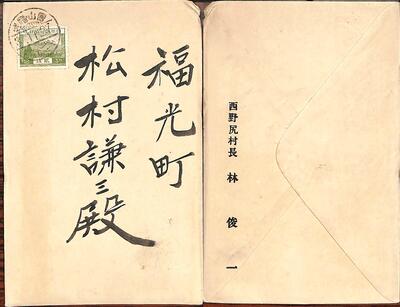 福光町
松村謙三殿
西野尻村長 林 俊 一